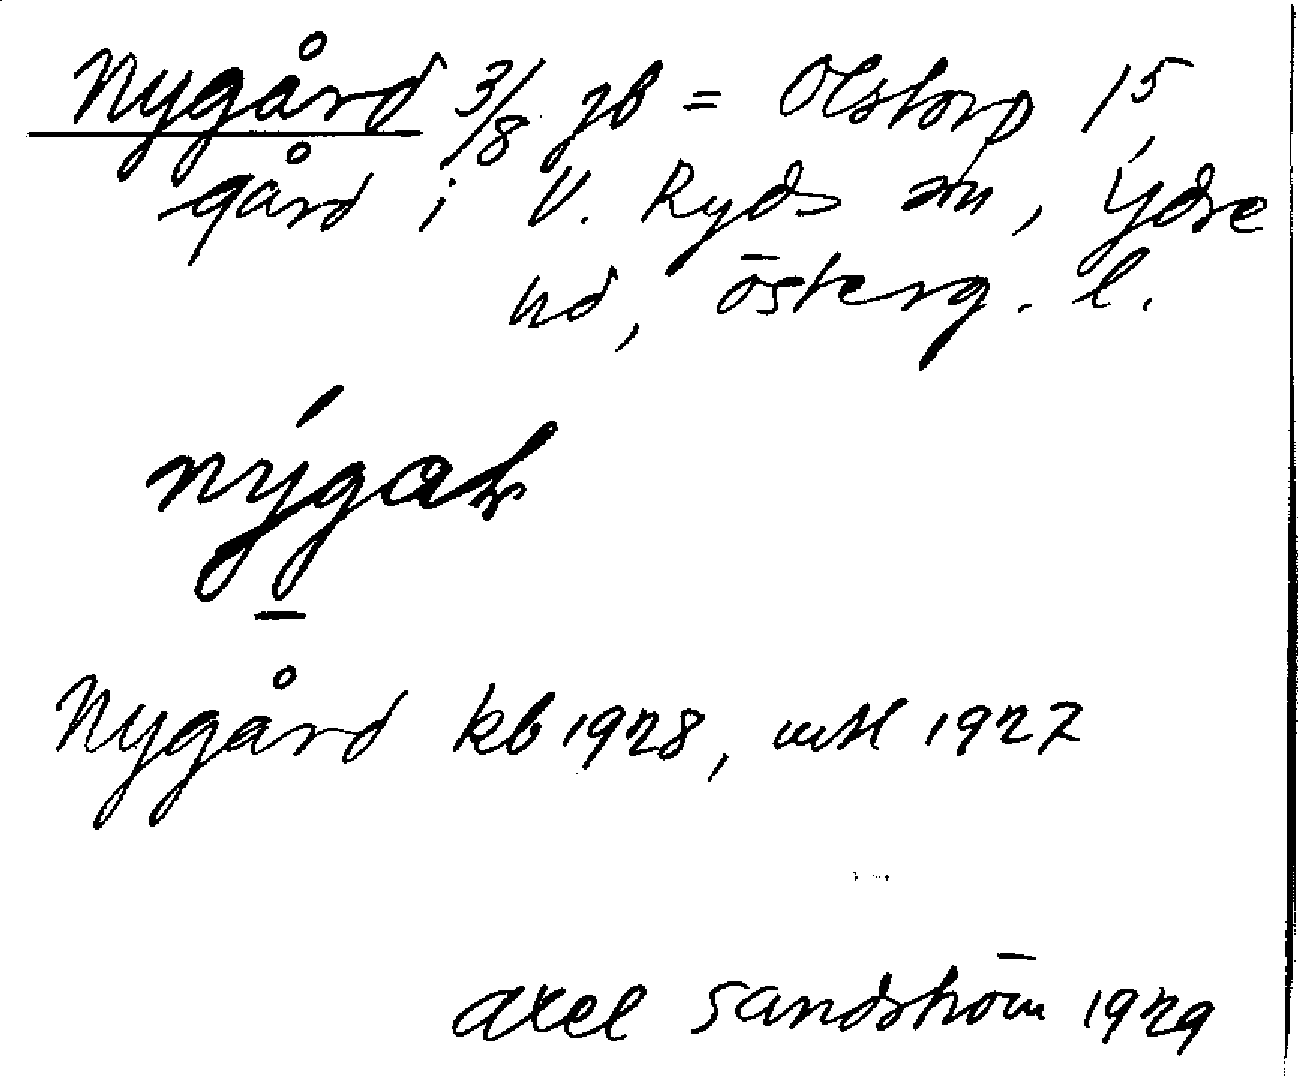 Nygård 3/8 jb = Olstorp 15,
gård i V. Ryds sn, Ydre
hd, Österg. l.
nýgah
Nygård kb 1928, mtl 1927
Axel Sandström 1929